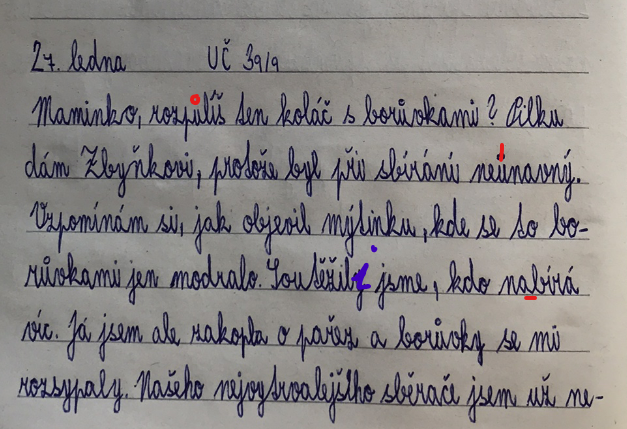 27. ledna UČ 39/9
Maminko, rozpůlíš ten koláč s borůvkami? Půlku
dám Zbyňkovi, protože byl při sbírání neúnavný.
Vzpomínám si, jak objevil mýtinku, kde se to bo-
růvkami jen modralo. Soutěžili jsme, kdo nabírá
víc. Já jsem ale zakopla o pařez a borůvky se mi
rozsypaly. Našeho nejvytrvalejšího sběrače jsem už ne-